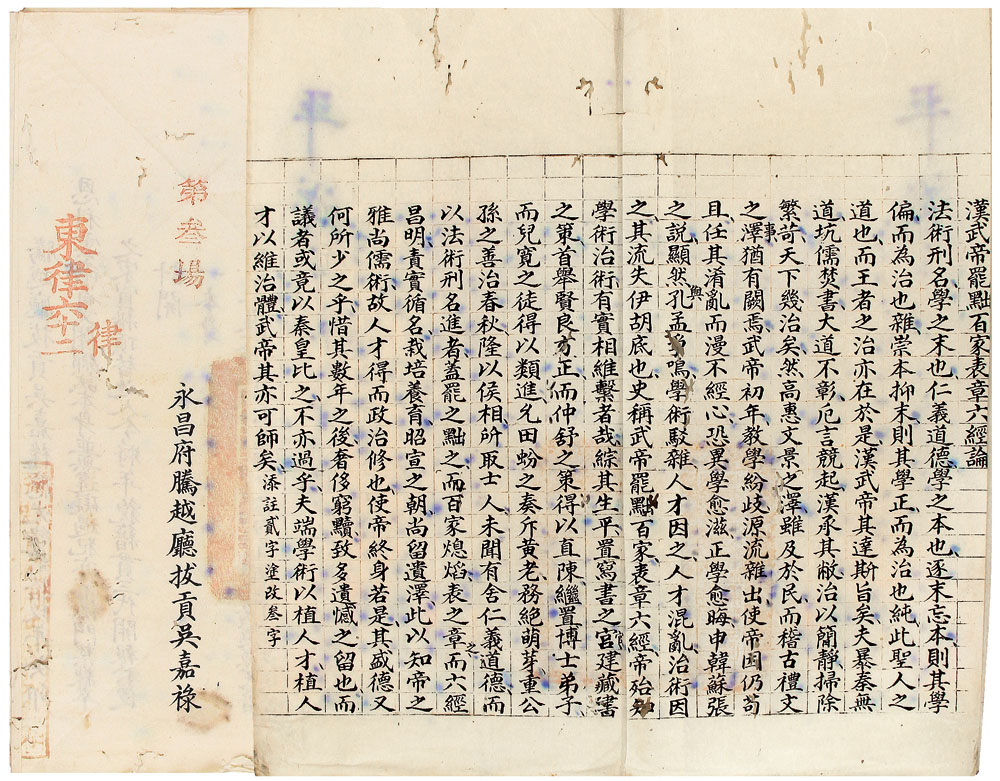 漢武帝罷黜百家表章六經論
法術刑名學之末也仁義道德學之本也逐末忘本則其學
偏而為治也雜崇本抑末則其學正而為治也純此聖人之
道也而王者之治亦在於是漢武帝其達斯旨矣夫暴秦無
道坑儒焚書大道不彰厄言競起漢承其敝治以簡靜掃除
繁苛天下幾治矣然高惠文景之澤雖及於民而稽古禮文
之事澤猶有闕焉武帝初年教學紛歧源流雜出使帝因仍苟
且任其淆亂而漫不經心恐異學愈滋正學愈晦申韓蘇張
之說顯然與孔孟爭鳴學術駁雜人才因之人才混亂治術因
之其流失伊胡底也史稱武帝罷黜百家表章六經帝殆知
學術治術有實相維繫者哉綜其生平置寫書之官建藏書
之策首舉賢良方正而仲舒之策得以直陳繼置博士弟子
而兒寬之徒得以類進允田蚡之奏斥黃老務絕萌芽重公
孫之善治春秋隆以侯相所取士人未聞有舍仁義道德而
以法術刑名進者蓋罷之黜之而百家熄焰表之章之而六經
昌明責實循名栽培養育昭宣之朝尚留遺澤此以知帝之
雅尚儒術故人才得而政治修也使帝終身若是其盛德又
何所少之乎惜其數年之後奢侈窮黷致多遺憾之留也而
議者或竟以秦皇比之不亦過乎夫端學術以植人才植人
才以維治體武帝其亦可師矣添註貳字塗改叁字
永昌府騰越廳拔貢吳嘉祿
第叁場
律
東律六十二